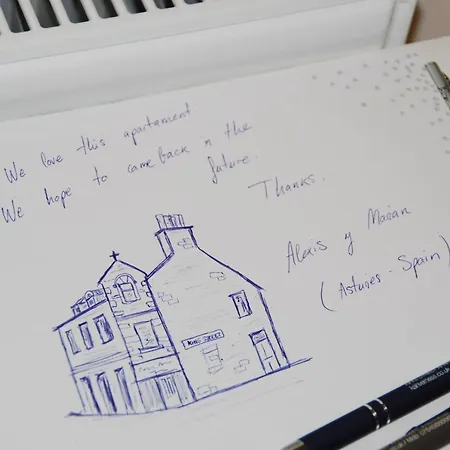 We love this apartament
We hope to came back n the
future.
Thanks.
Alexis y Marian
(Astures - Spain)